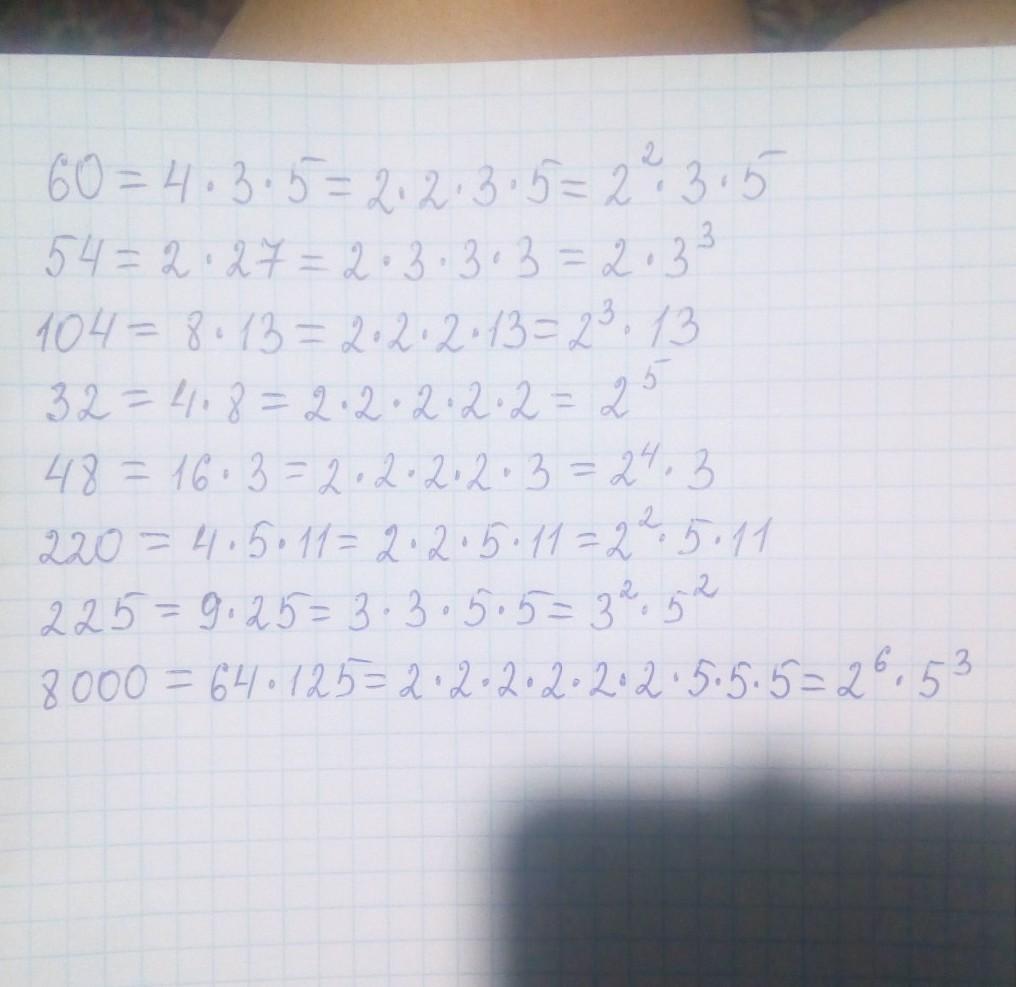 60 = 4 · 3 · 5 = 2 · 2 · 3 · 5 = 2² · 3 · 5
54 = 2 · 27 = 2 · 3 · 3 · 3 = 2 · 3³
104 = 8 · 13 = 2 · 2 · 2 · 13 = 2³ · 13
32 = 4 · 8 = 2 · 2 · 2 · 2 · 2 = 2⁵
48 = 16 · 3 = 2 · 2 · 2 · 2 · 3 = 2⁴ · 3
220 = 4 · 5 · 11 = 2 · 2 · 5 · 11 = 2² · 5 · 11
225 = 9 · 25 = 3 · 3 · 5 · 5 = 3² · 5²
8000 = 64 · 125 = 2 · 2 · 2 · 2 · 2 · 2 · 5 · 5 · 5 = 2⁶ · 5³